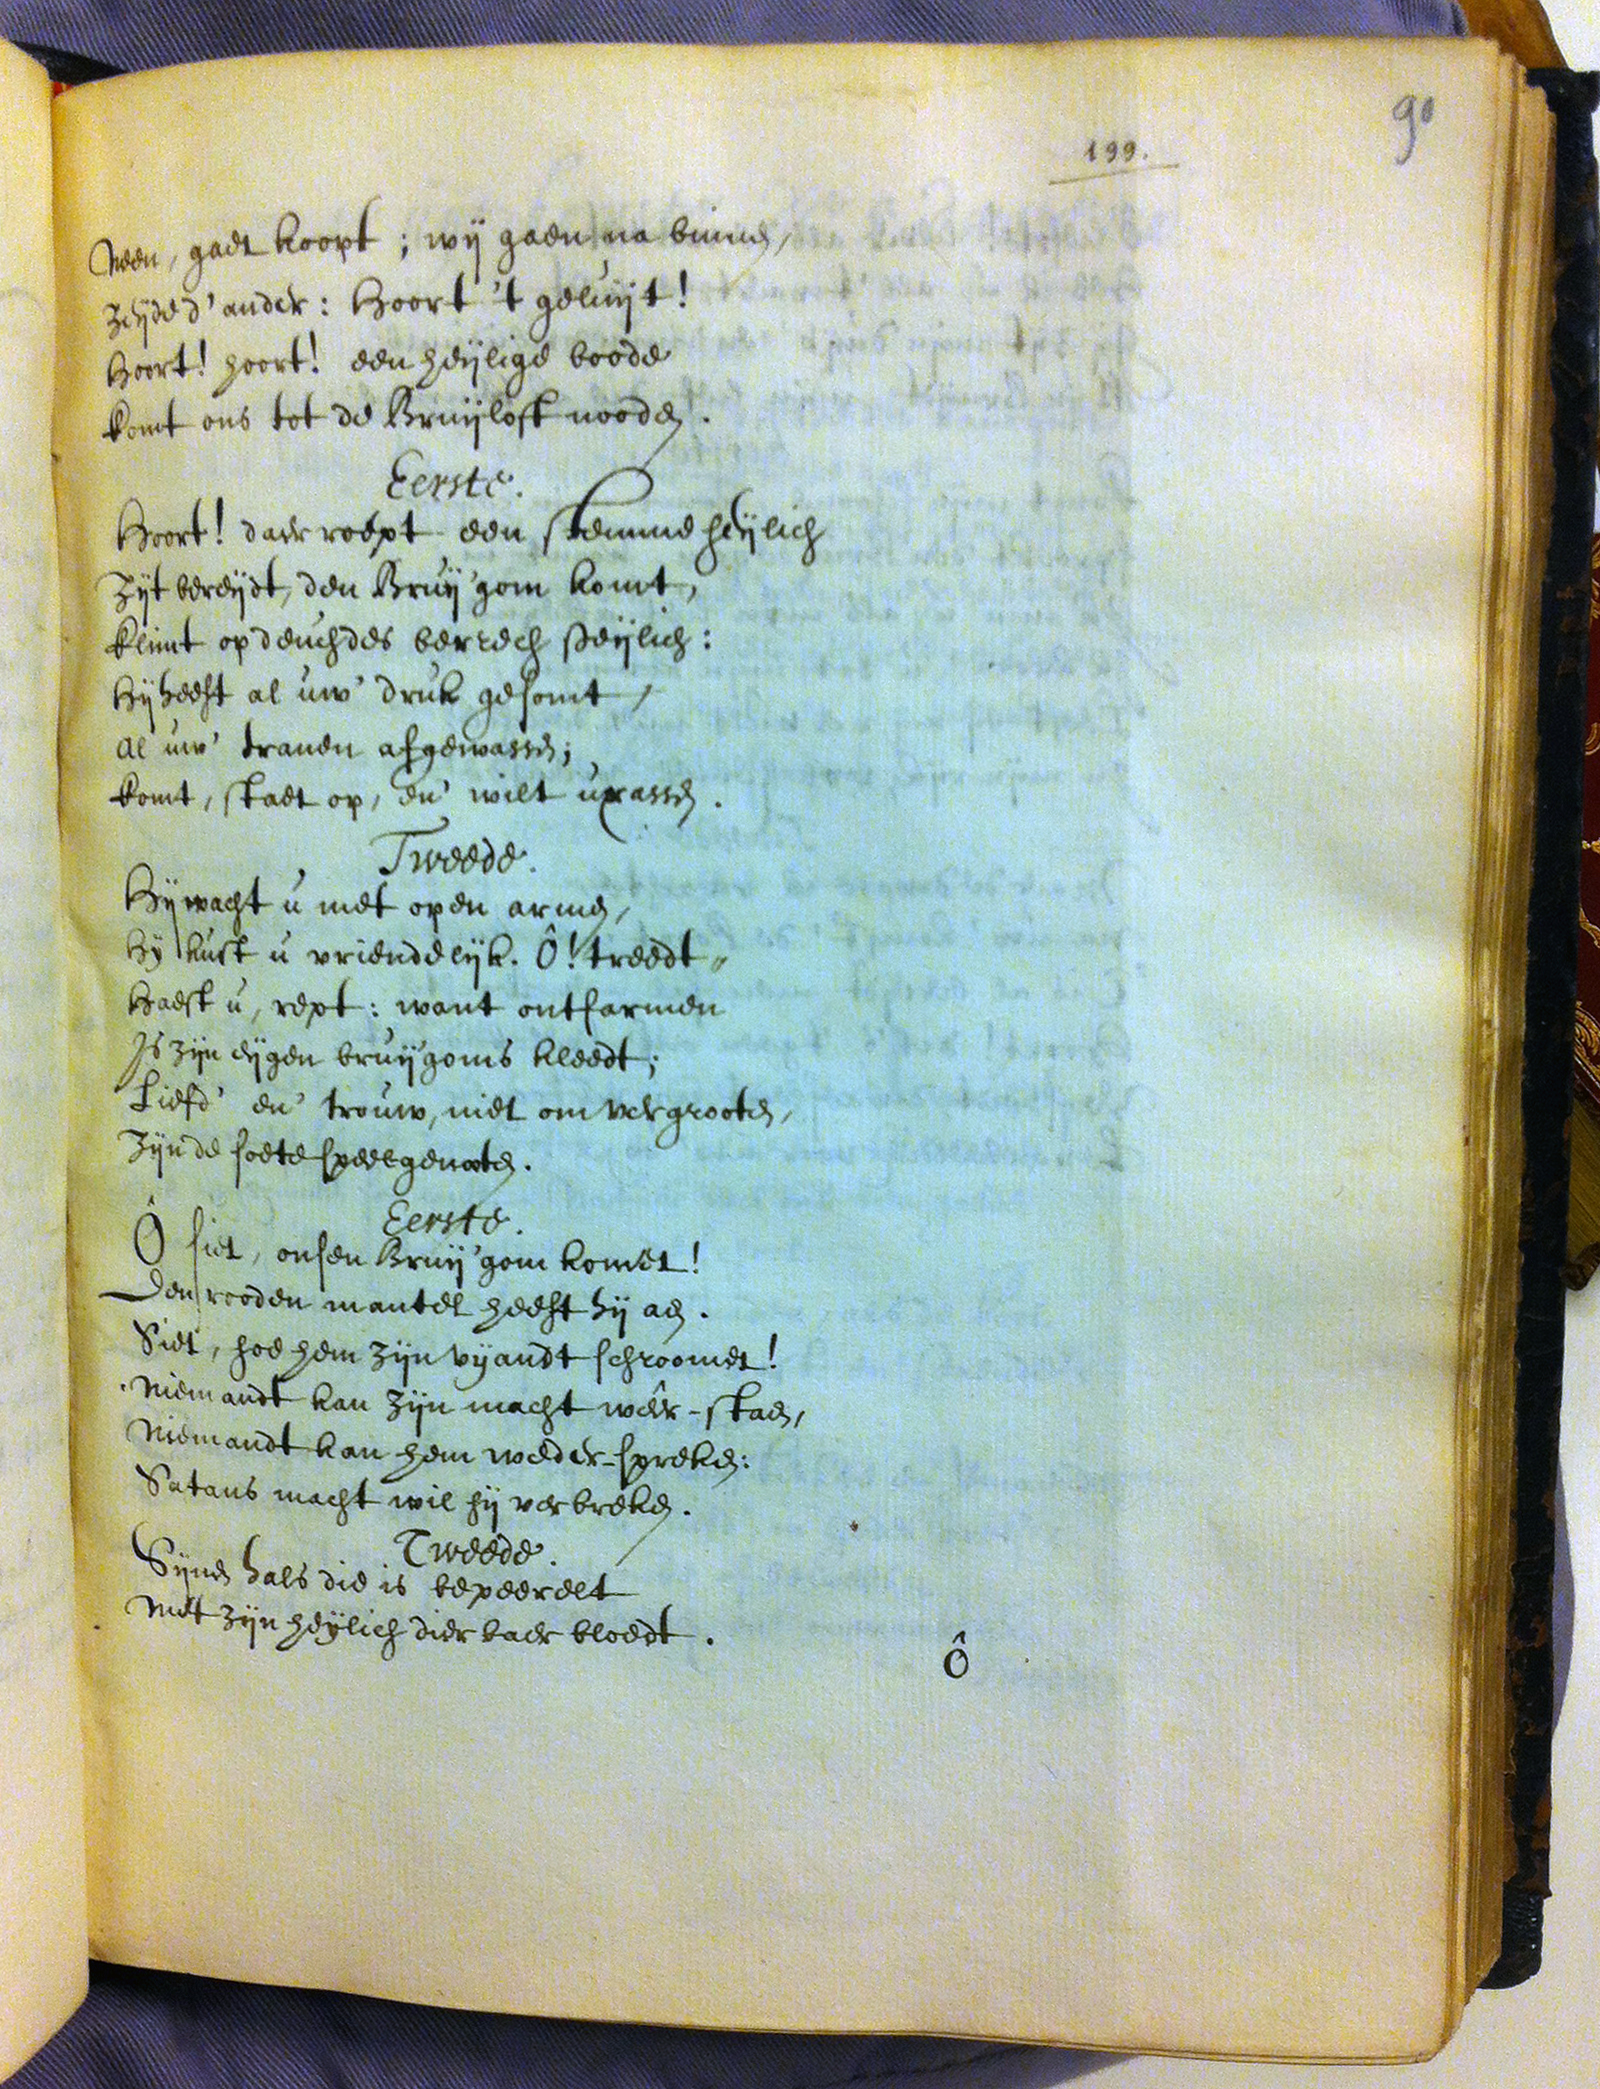 90
199.
Neen, gaet koopt; wij gaen na binnen,
Zeijde d'ander: Hoort 't geluijt!
Hoort! hoort! een heijlige boode
komt ons tot de Bruijloft nooden.
Eerste.
Hoort! daer roept een stemme heijlich
Zijt bereijdt, den Bruij'gom komt,
klimt op deuchdes berrech steijlich:
Hij heeft al uw' druk gesomt,
al uw' tranen afgewassen;
komt, staet op, en' wilt u rassen.
Tweede.
Hij wacht u met open armen,
Hij kust u vriendelijk. Ô! treedt,
Haest u, rept: want ontfarmen
Is zijn eijgen bruijgoms kleedt;
Liefd' en' trouw, niet om vergrooten,
Zijn de soete speelgenooten.
Eerste.
Ô siet, onsen Bruij'gom komet!
Den rooden mantel heeft hij aen.
Siet, hoe hem zijn vijandt schroomet!
Niemandt kan zijn macht wêer-staen,
Niemandt kan hem weder-spreken:
Satans macht wil hij verbreken.
Tweede.
Sijnen hals die is bepeerelt
Met zijn heijlich dierbaer bloedt.
Ô